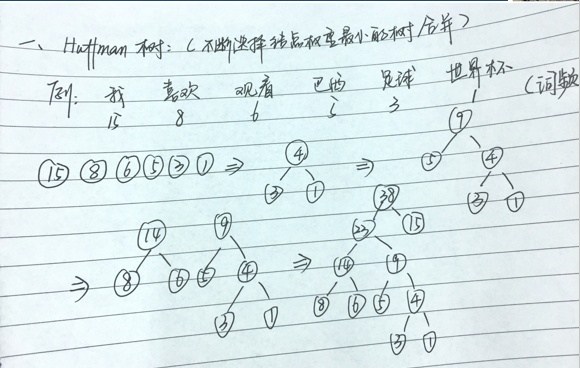 一、Huffman 树：（不断选择结点权重最小的树合并）
例： 我 喜欢 观看 巴西 足球 世界杯 （词频
15 8 6 5 3 1
15 8 6 5 3 1 ⇒ 4 3 1 ⇒ 9 5 4 3 1
⇒ 14 8 6 9 5 4 3 1 ⇒ 38 23 15 14 9 8 6 5 4 3 1